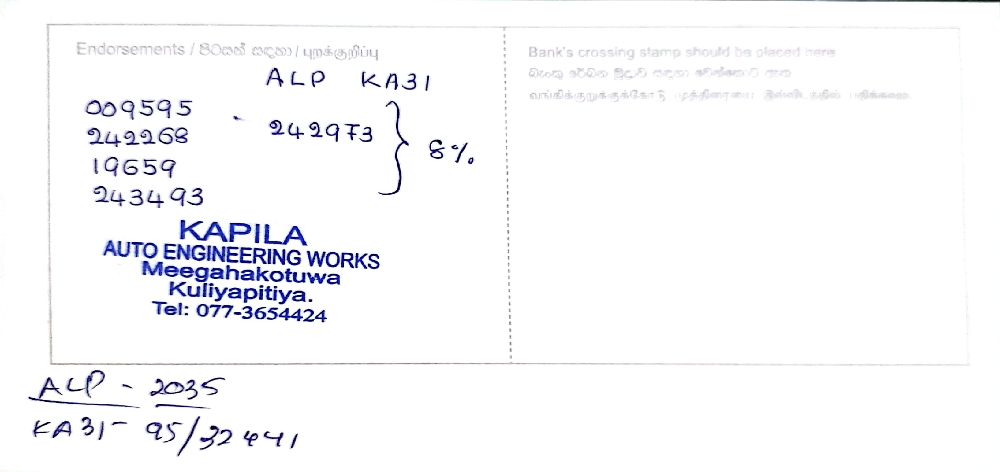 Endorsements / පිටසන් සඳහා / புறக்குறிப்பு
ALP KA31
009595 - 242973 } 8%
242268
19659
243493
KAPILA
AUTO ENGINEERING WORKS
Meegahakotuwa
Kuliyapitiya.
Tel: 077-3654424
Bank's crossing stamp should be placed here
ALP - 2035
KA31- 95/32441